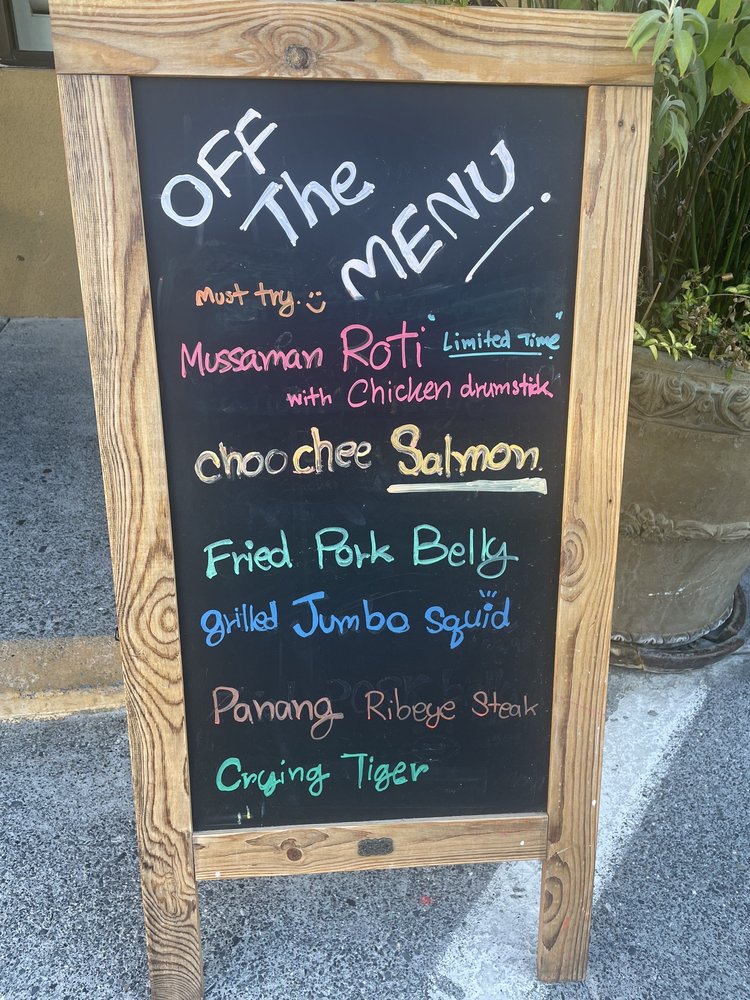 OFF The MENU.
Must try.
Mussaman Roti "Limited Time"
with Chicken drumstick
choochee Salmon.
Fried Pork Belly
grilled Jumbo Squid
Panang Ribeye Steak
Crying Tiger